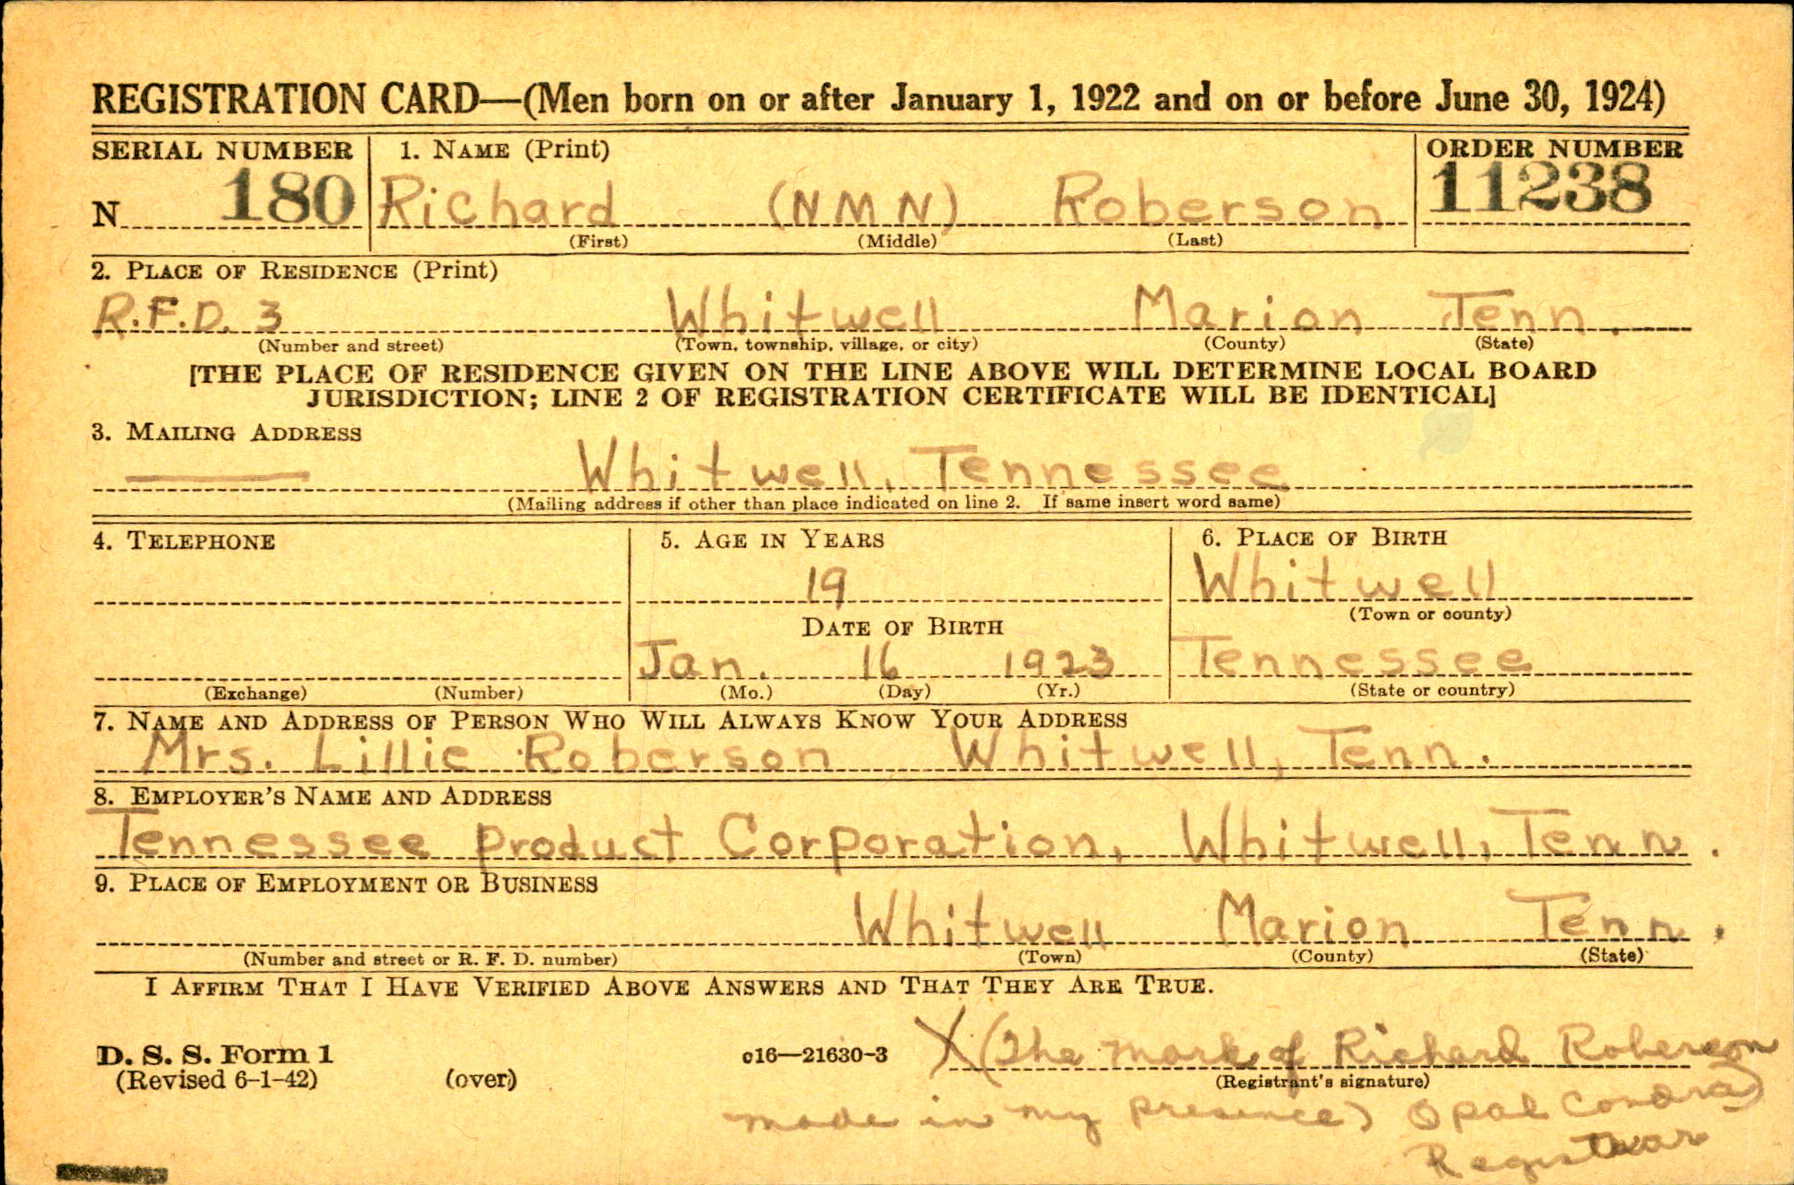 REGISTRATION CARD—(Men born on or after January 1, 1922 and on or before June 30, 1924)
SERIAL NUMBER 1. NAME (Print) ORDER NUMBER
N 180 Richard (NMN) Roberson 11238
(First) (Middle) (Last)
2. PLACE OF RESIDENCE (Print)
R.F.D. 3 Whitwell Marion Tenn.
(Number and street) (Town, township, village, or city) (County) (State)
[THE PLACE OF RESIDENCE GIVEN ON THE LINE ABOVE WILL DETERMINE LOCAL BOARD
JURISDICTION; LINE 2 OF REGISTRATION CERTIFICATE WILL BE IDENTICAL]
3. MAILING ADDRESS
Whitwell, Tennessee
(Mailing address if other than place indicated on line 2. If same insert word same)
4. TELEPHONE 5. AGE IN YEARS 6. PLACE OF BIRTH
19 Whitwell
(Town or county)
DATE OF BIRTH
Jan. 16 1923 Tennessee
(Exchange) (Number) (Mo.) (Day) (Yr.) (State or country)
7. NAME AND ADDRESS OF PERSON WHO WILL ALWAYS KNOW YOUR ADDRESS
Mrs. Lillie Roberson Whitwell, Tenn.
8. EMPLOYER'S NAME AND ADDRESS
Tennessee Product Corporation, Whitwell, Tenn.
9. PLACE OF EMPLOYMENT OR BUSINESS
Whitwell Marion Tenn.
(Number and street or R. F. D. number) (Town) (County) (State)
I AFFIRM THAT I HAVE VERIFIED ABOVE ANSWERS AND THAT THEY ARE TRUE.
D. S. S. Form 1 c16—21630-3 X (The mark of Richard Roberson
(Revised 6-1-42) (over) (Registrant's signature)
made in my presence) Opal Condra
Registrar